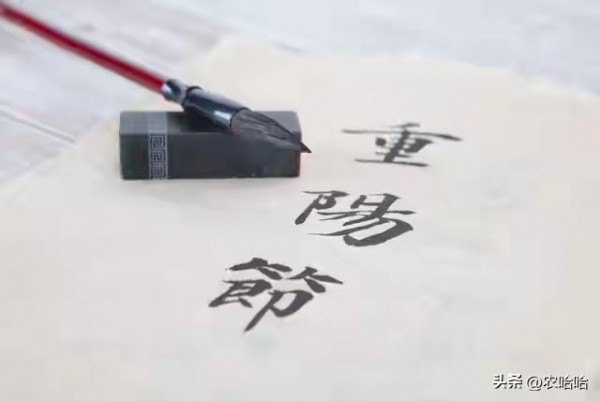 重
陽
節
头条 @农哈哈